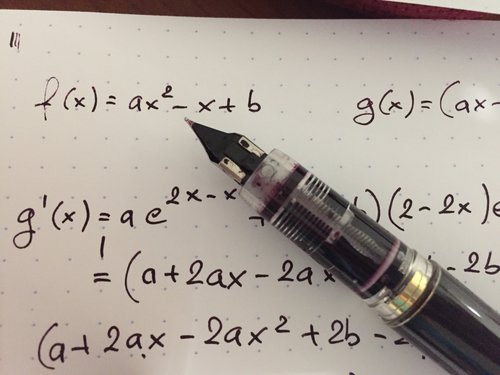 f(x) = ax² - x + b g(x) = (ax-
g'(x) = a e^2x-x ) (2 - 2x) e
= (a + 2ax - 2ax - 2b
(a + 2ax - 2ax² + 2b -